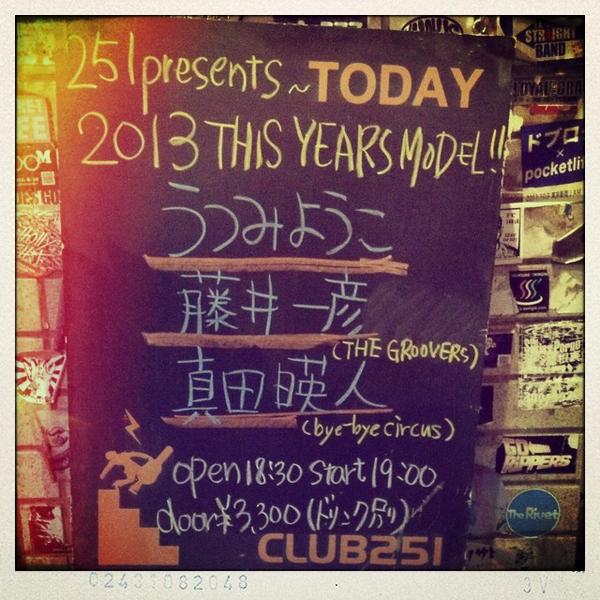 251 presents ~ TODAY
2013 THIS YEARS MODEL!!
うつみようこ
藤井一彦
(THE GROOVERS)
真田暎人
(bye-bye circus)
open 18:30 start 19:00
door ¥3,300 (ドリンク別)
CLUB251
STRAIGHT
BAND
ドブロ
pocketli
GO
RIPPERS
The Rivet
02431082048
3V